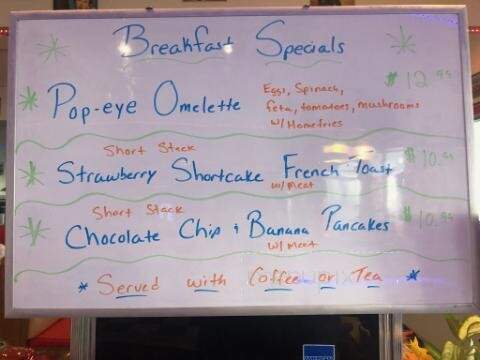 Breakfast Specials
Pop-eye Omelette
Eggs, Spinach,
feta, tomatoes, mushrooms
w/ Homefries
$12.99
Short Stack
Strawberry Shortcake French Toast
w/ meat
$10.99
Short Stack
Chocolate Chip & Banana Pancakes
w/ meat
$10.99
* Served with Coffee or Tea *
AMERICAN